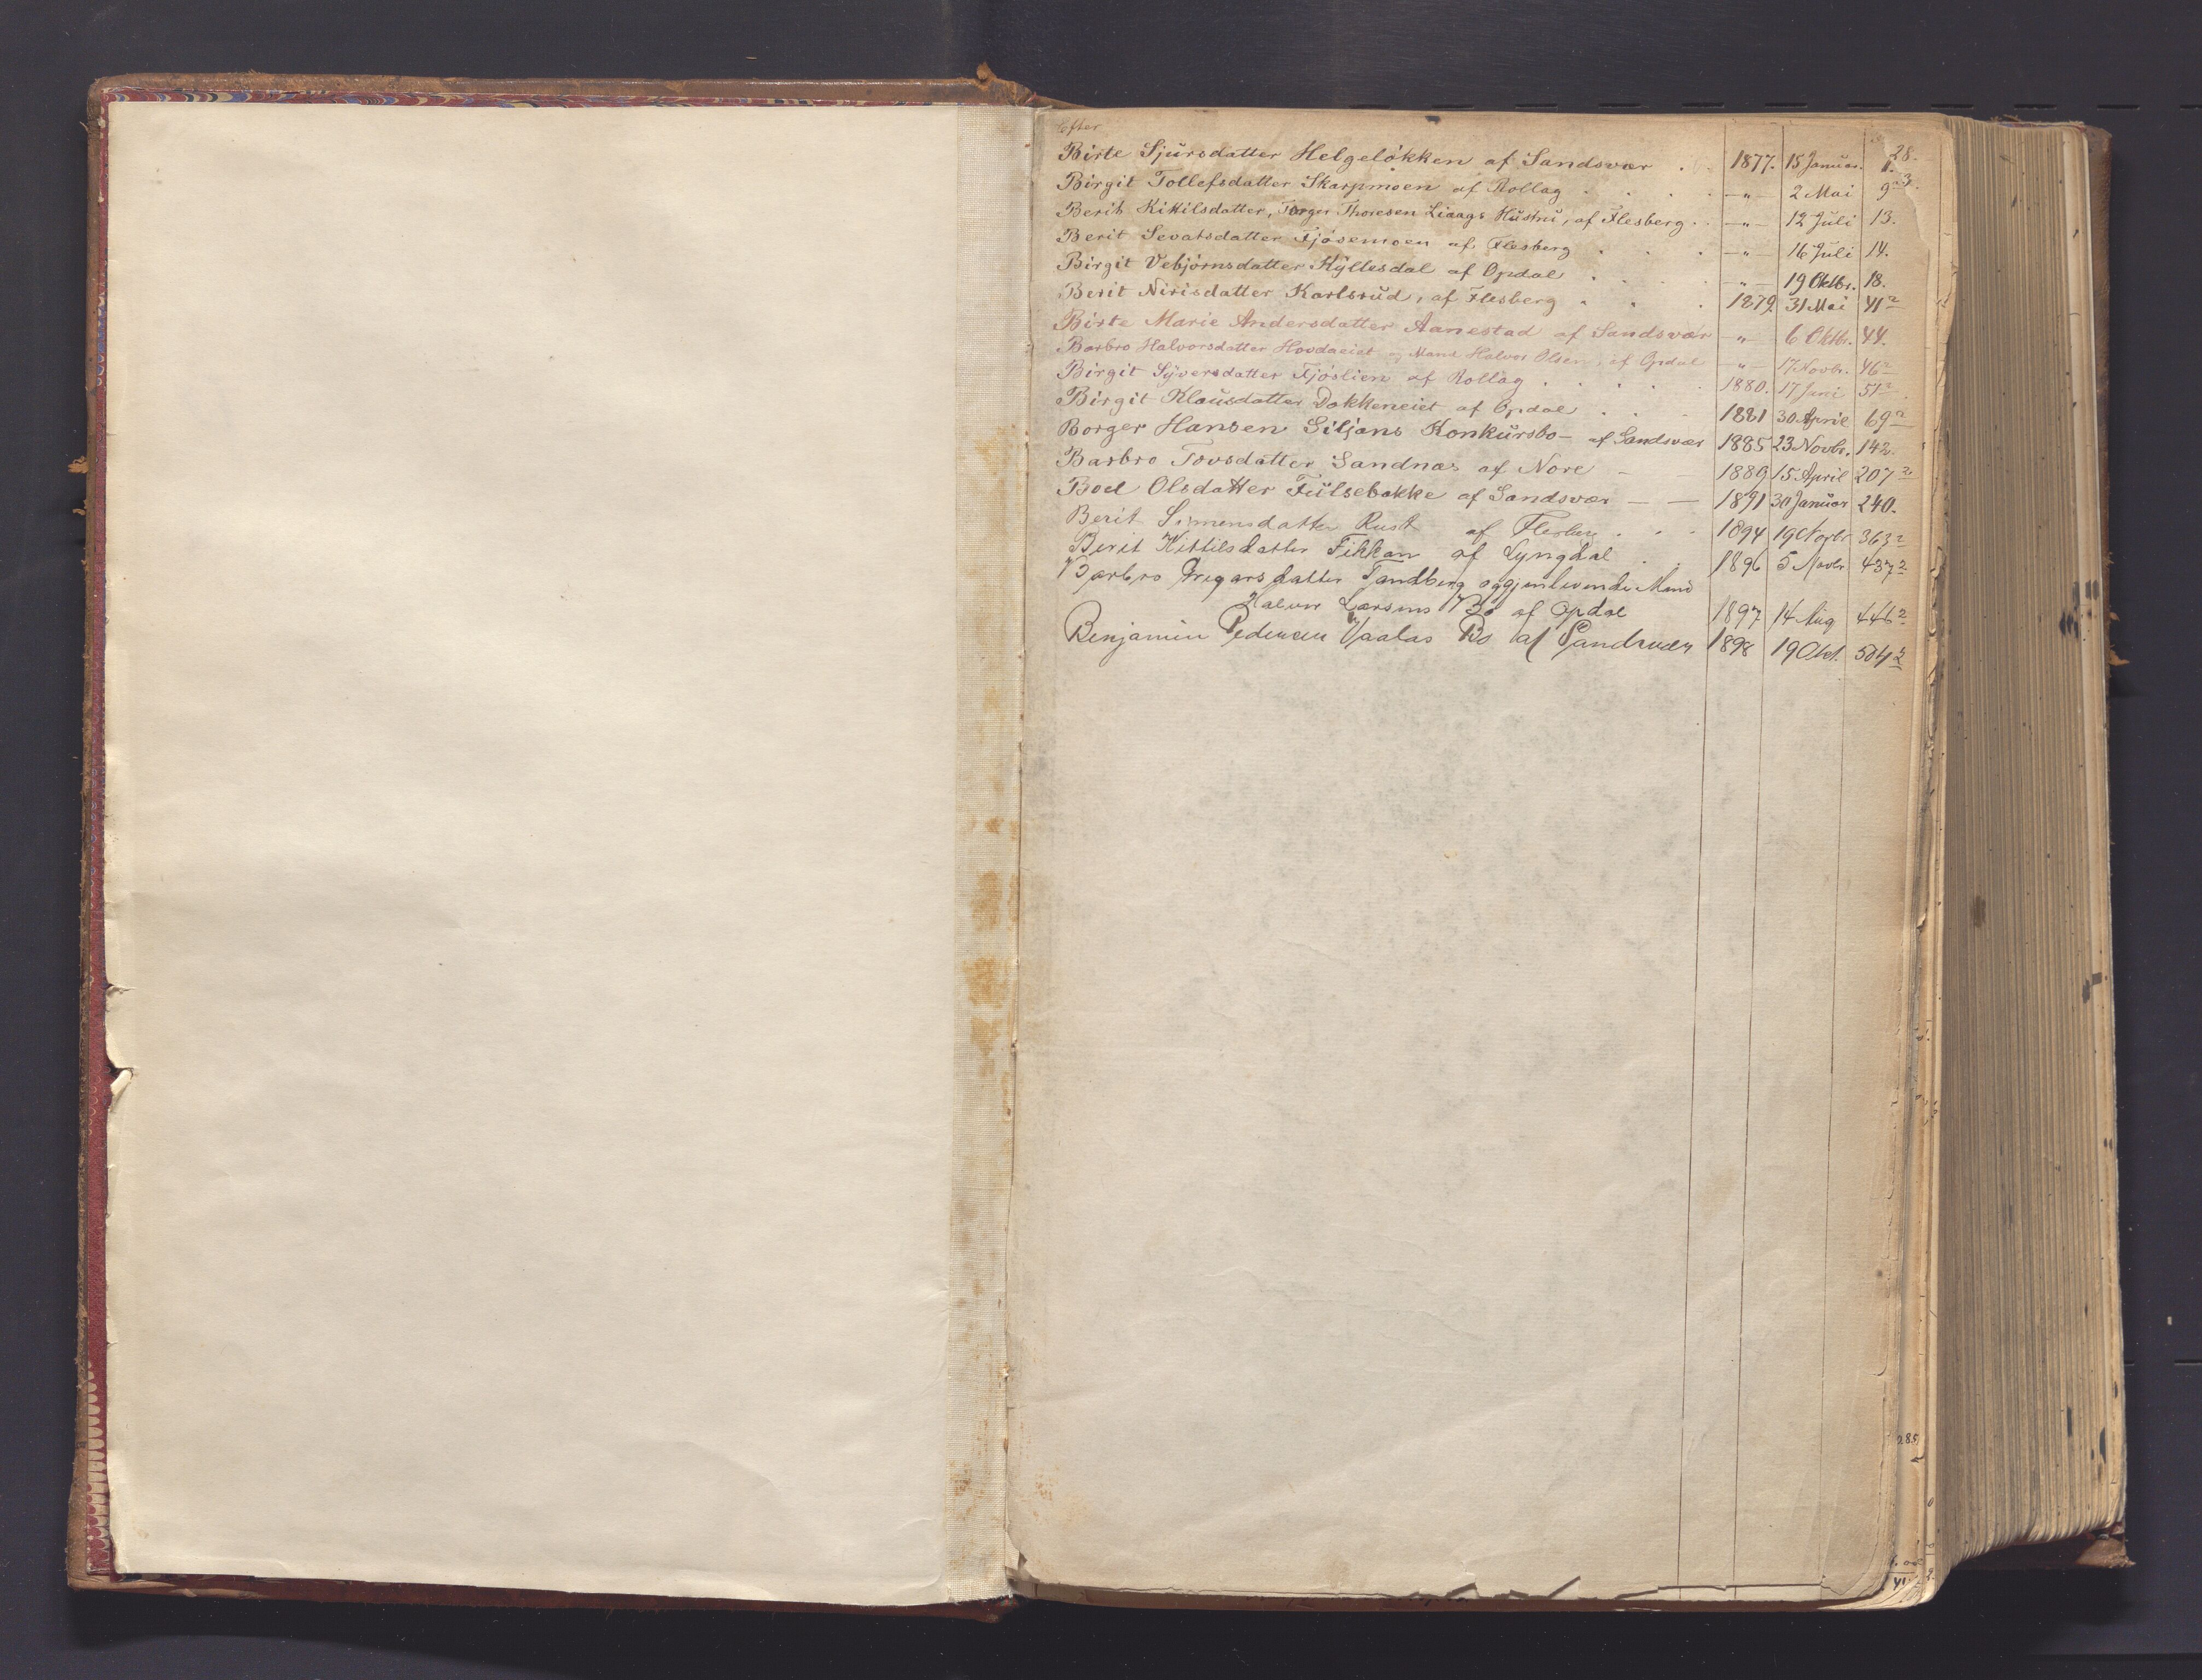 Efter
28.
Birte Sjursdatter Helgeløkken af Sandsvær . . 1877. 15 Januar. 1.
Birgit Tollefsdatter Skarpmoen af Rollag . . . . . —"— 2 Mai 9 3.
Berit Kittilsdatter, Torger Thoresen Liaags Hustru, af Flesberg . . —"— 12 Juli 13.
Berit Sevatsdatter Fjøsemoen af Flesberg . . . . —"— 16 Juli 14.
Birgit Vebjørnsdatter Kyllesdal af Opdal . . . . . —"— 19 Oktbr. 18.
Berit Nirisdatter Karlsrud, af Flesberg . . . 1879. 31 Mai 41 2
Birte Marie Andersdatter Aanestad af Sandsvær —"— 6 Oktbr. 44.
Barbro Halvorsdatter Hovdaeiet og Mand Halvor Olsen, af Opdal —"— 17 Novbr. 46 2
Birgit Syversdatter Fjøslien af Rollag . . . . . 1880. 17 Juni 51 2.
Birgit Klausdatter Dokkeneiet af Opdal . . . 1881 30 April 69 2
Borger Hansen Siljans Konkursbo – af Sandsvær 1885 23 Novbr. 142.
Barbro Tovsdatter Sandnæs af Nore — — 1889 15 April 207 2
Boel Olsdatter Fulsebakke af Sandsvær — — 1891 30 Januar 240.
Berit Simensdatter Rust af Flesberg . . . 1894 19 Novbr 363 2
Berit Kittilsdatter Fikkan af Lyngdal . . 1896 5 Novbr 437 2
Barbro Gregarsdatter Tandberg og gjenlevende Mand
Halvor Larsens Bo af Opdal 1897 14 Aug 446 2
Benjamin Pedersen Vaalas Bo af Sandsvær 1898 19 Okt. 504 2
285